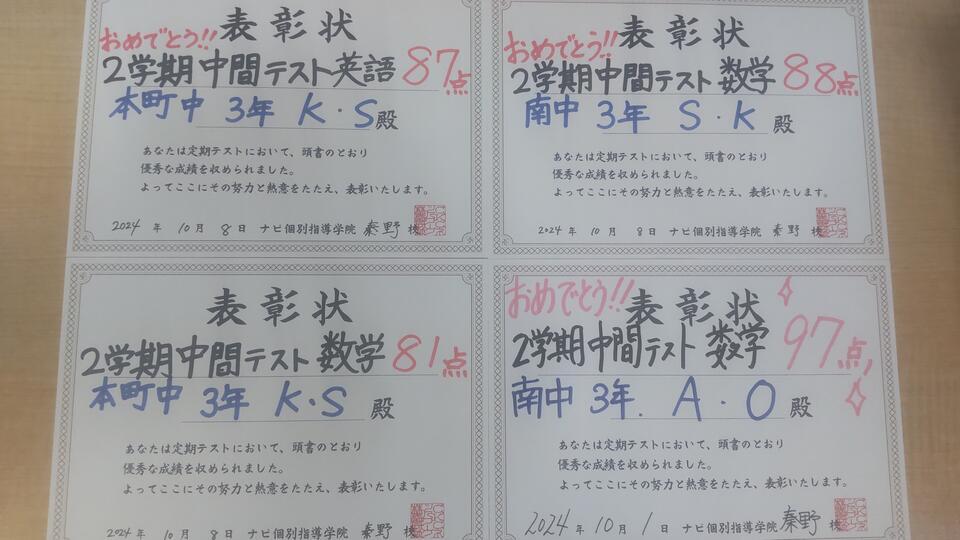 表彰状
おめでとう!!
2学期中間テスト英語 87点
本町中 3年 K・S殿
あなたは定期テストにおいて、頭書のとおり
優秀な成績を収められました。
よってここにその努力と熱意をたたえ、表彰いたします。
2024 年 10 月 8 日 ナビ個別指導学院 秦野 校
表彰状
おめでとう!!
2学期中間テスト 数学 88点
南中 3年 S・K 殿
あなたは定期テストにおいて、頭書のとおり
優秀な成績を収められました。
よってここにその努力と熱意をたたえ、表彰いたします。
2024 年 10 月 8 日 ナビ個別指導学院 秦野 校
表彰状
2学期中間テスト 数学 81点
本町中 3年 K・S 殿
あなたは定期テストにおいて、頭書のとおり
優秀な成績を収められました。
よってここにその努力と熱意をたたえ、表彰いたします。
2024 年 10 月 8 日 ナビ個別指導学院 秦野 校
おめでとう!!
表彰状
2学期中間テスト 数学 97点
南中 3年. A・O 殿
あなたは定期テストにおいて、頭書のとおり
優秀な成績を収められました。
よってここにその努力と熱意をたたえ、表彰いたします。
2024 年 10 月 1 日 ナビ個別指導学院 秦野 校